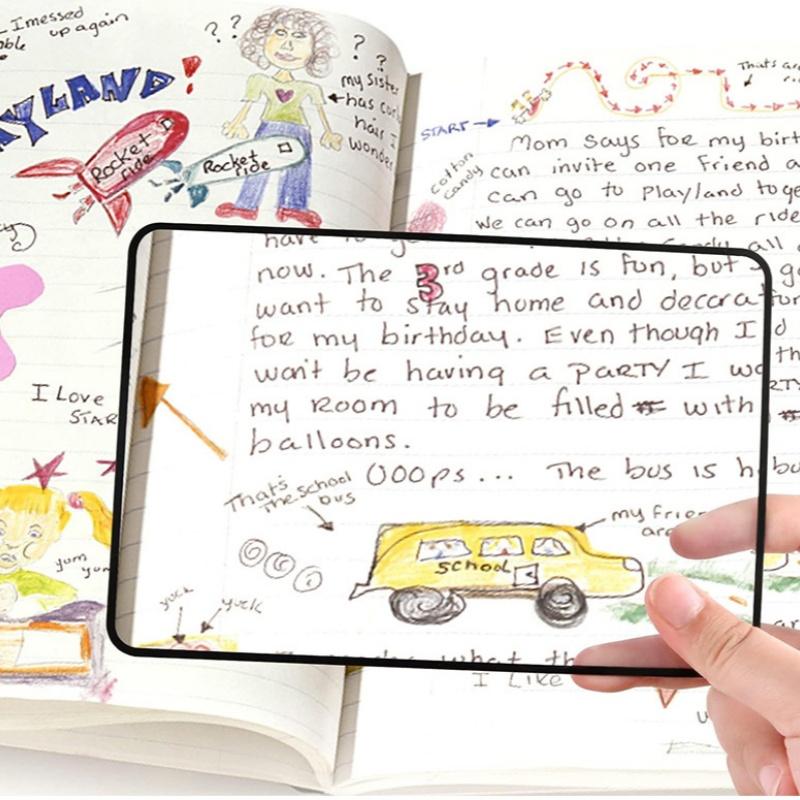 I messed
up again
YLAND!
? ?
? ?
my sister
has
hair I
wonder
Rocket
ride
Rocket
ride
I Love
STAR
yum
yum
START
That's
Cotton
candy
Mom says for my birt
can invite one friend a
can go to Playland toge
we can go on all the ride
all
have to
now. The 3rd grade is fun, but
want to stay home and decora
for my birthday. Even though I
won't be having a PARTY I wo
my Room to be filled with
balloons.
OOOps... The bus is h
That's
the school
bus
my frie
are
SCHOOL
yuck
yuck
what th
I Like